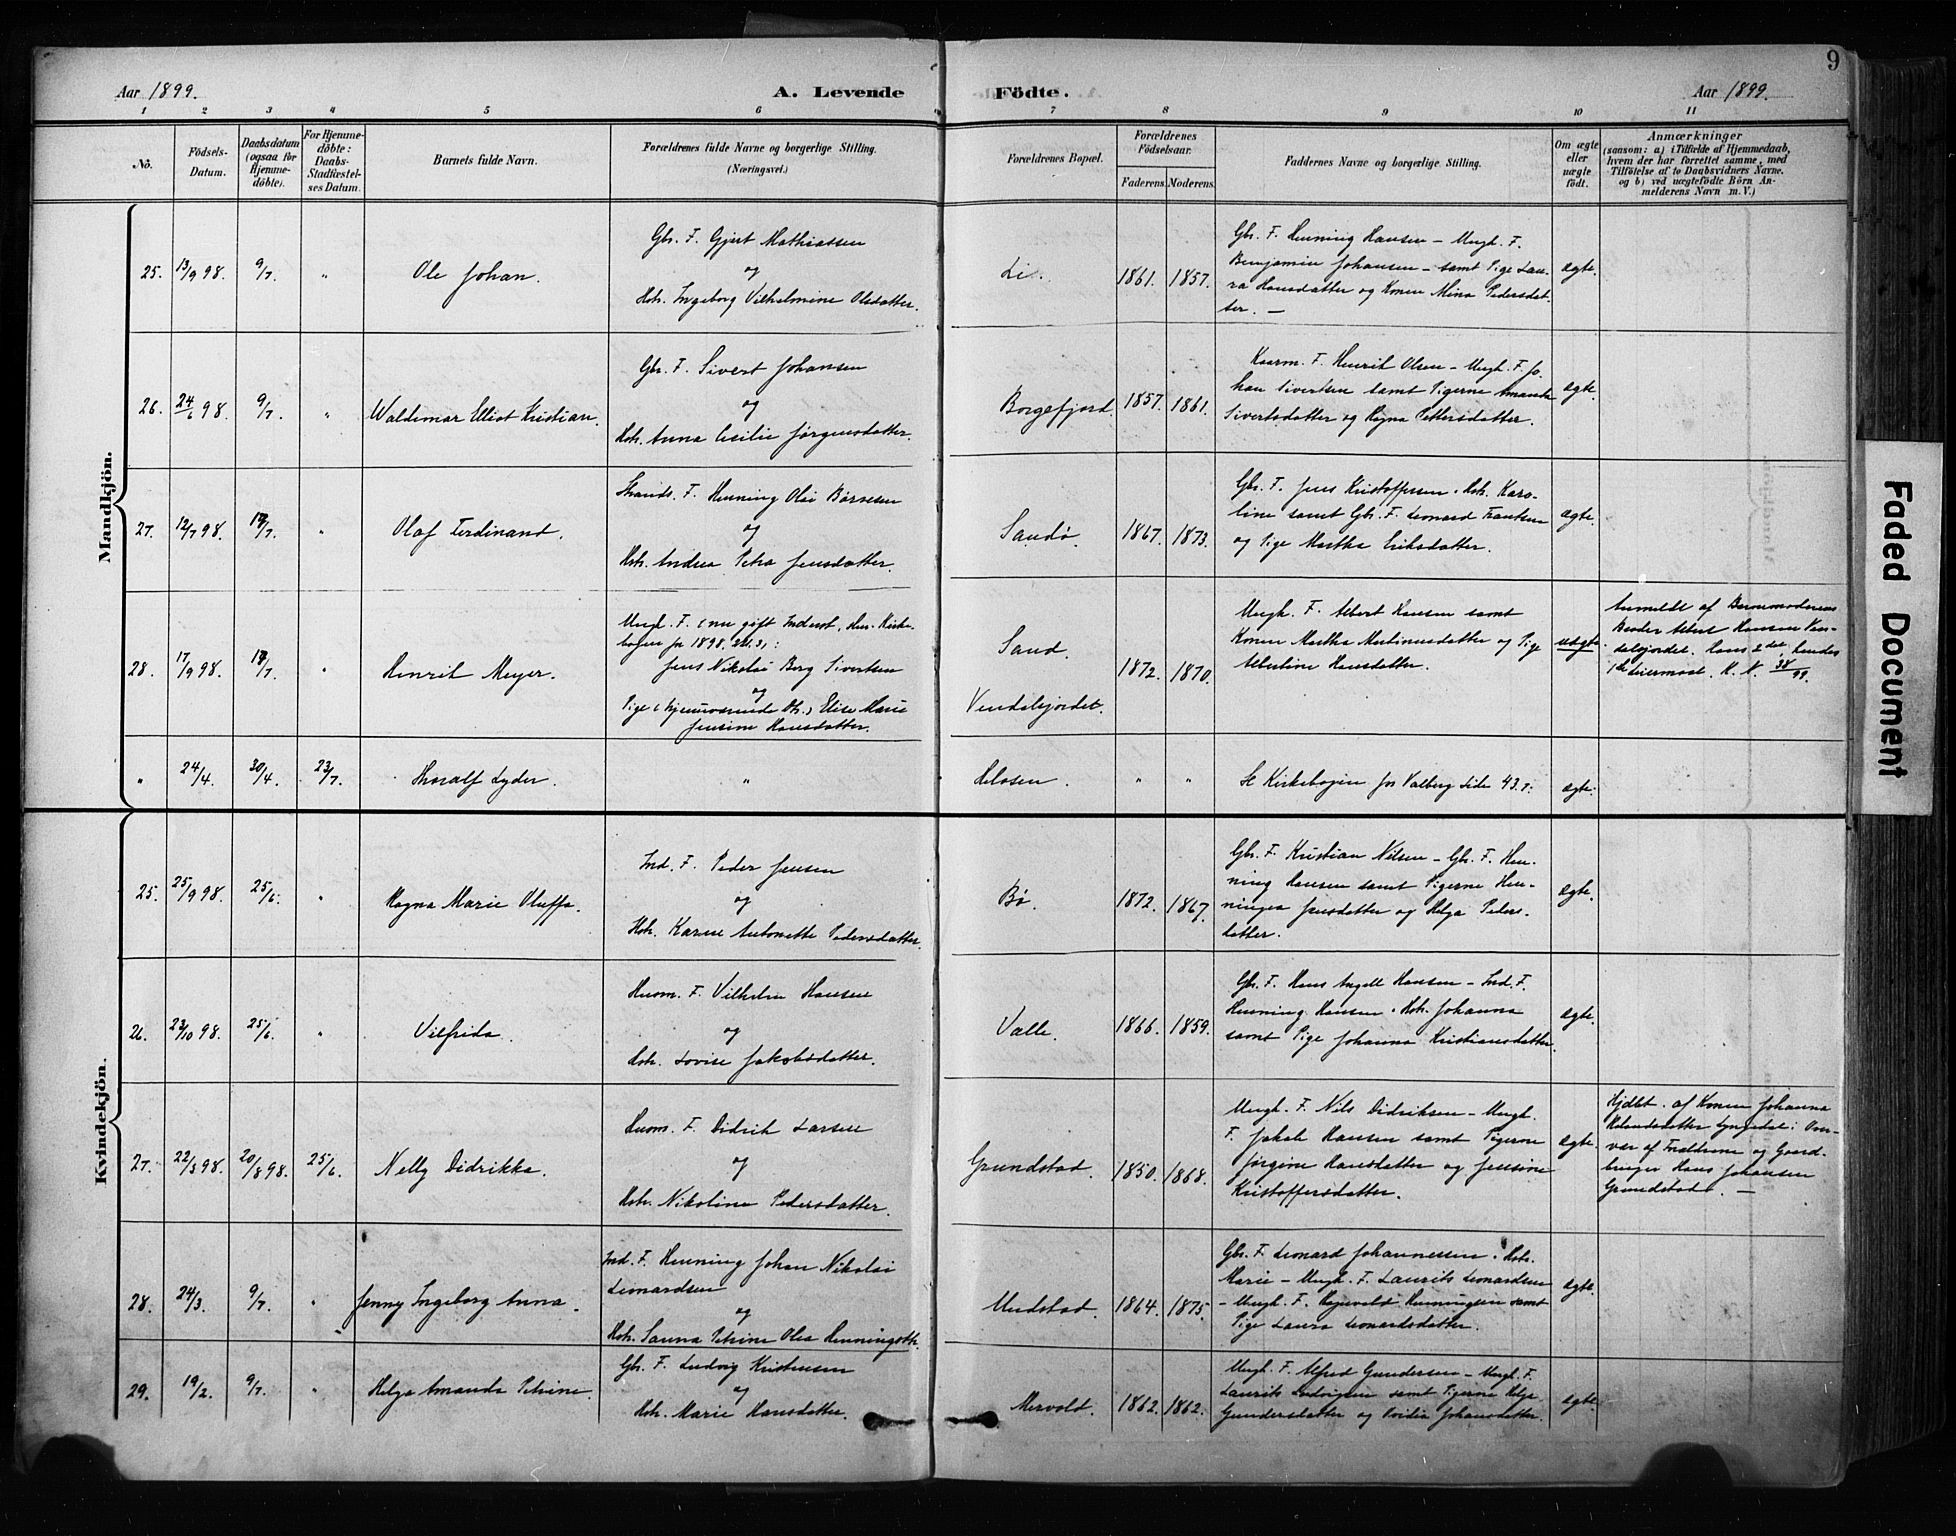 9
Aar 1899.
A. Levende
Födte.
Aar 1899.
1 2 3 4 5 6 7 8 9 10 11
No.
Födsels-
Datum.
Daabsdatum
(ogsaa for
Hjemme-
döbte).
For Hjemme-
döbte:
Daabs-
Stadfæstel-
ses Datum.
Barnets fulde Navn.
Forældrenes fulde Navne og borgerlige Stilling.
(Næringsvei.)
Forældrenes Bopæl.
Forældrenes
Födselsaar.
Faderens. Moderens.
Faddernes Navne og borgerlige Stilling.
Om ægte
eller
uægte
födt.
Anmærkninger
(saasom: a) i Tilfælde af Hjemmedaab,
hvem der har forrettet samme, med
Tilföielse af to Daabsvidners Navne.
og b) ved uægtefödte Börn An-
melderens Navn m. V.)
Mandkjön.
25. 13/9 98. 9/7. " Ole Johan.
Gbr. F. Gjert Mathiassen
og
Hst. Ingeborg Vilhelmine Olsdatter.
Li. 1861. 1857.
Gbr. F. Henning Hansen – Ungk. F.
Benjamin Johansen – samt Pige Lau-
ra Hansdatter og Konen Mina Pedersdat-
ter. –
ægte.
26. 24/6 98. 9/7. " Waldemar Elliot Kristian.
Gbr. F. Sivert Johansen
og
Hst. Anna Cecilie Jørgensdatter.
Borgefjord. 1857. 1861.
Kaarm. F. Henrik Olsen – Ungk. F. Jo-
han Sivertsen samt Pigerne Amanda
Sivertsdatter og Ragna Pettersdatter.
ægte.
27. 12/7 98. /7. " Olaf Ferdinand.
F. Henning Olai Børresen
og
Hst. Andrea Petra Jensdatter.
Sandø. 1867. 1873.
Gbr. F. Jens Kristoffersen. Hst. Karo-
line samt Gbr. F. Leonard Frantsen
og Pige Martha Eriksdatter.
ægte.
28. 17/9 98. /7. " Henrik Meyer.
Ungk. F. (nu gift Inderst, Kirke-
bogen for 1898, :
Jens Nikolai Berg Sivertsen
og
Pige (hjemmeværende Dt.) Elise Marie
Jensine Hansdatter.
Sand.
Vendelsjordet.
1872. 1870.
Ungk. F. Albert Hansen samt
Konen Martha Martinusdatter og Pige
Albertine Hansdatter.
uægte.
Anmeldt af Barnemoderens
Broder Albert Hansen Ven-
delsjordet. Hans 2det, hendes
1ste Leiermaal. K. N. 38/99.
" 24/4. 30/4. 23/7. Thoralf Lyder. " Helosen. " " Se Kirkebogen for Valberg Side 43. ægte.
Kvindekjön.
25. 25/9 98. 25/6. " Magna Marie Oluffa.
Ind. F. Peder Jensen
og
Hst. Karen Antonette Pedersdatter.
Bø. 1872. 1867.
Gbr. F. Kristian Nilsen – Gbr. F. Hen-
ning Hansen samt Pigerne Hen-
ningea Jensdatter og Helga Peders-
datter.
ægte.
26. 23/10 98. 25/6. " Vilfrida.
Husm. F. Vilhelm Hansen
og
Hst. Lovise Jakobsdatter.
Valle. 1866. 1859.
Gbr. F. Hans Angell Hansen – Ind. F.
Henning Hansen. Hst. Johanna
samt Pige Johanna Kristiansdatter.
ægte.
27. 22/3 98. 20/8 98. 25/6. Nelly Didrikka.
Husm. F. Didrik Larsen
og
Hst. Nikoline Pedersdatter.
Grundstad. 1850. 1868.
Ungk. F. Nils Didriksen – Ungk.
F. Jakob Hansen samt Pigerne
Jørgine Hansdatter og Jensine
Kristoffersdatter.
ægte.
Hjdbt. af Konen Johanna
Rolandsdatter Lyngedal i Over-
vær af Forældrene og Gaard-
bruger Hans Johansen
Grundstad. –
28. 24/3. 9/7. " Jenny Ingeborg Anna.
Ind. F. Henning Johan Nikolai
Leonardsen
og
Hst. Sanna Petrine Olea Henningsdtr.
Mudstad. 1864. 1875.
Gbr. F. Leonard Johannessen. Hst.
Marie – Ungk. F. Laurits Leonardsen
– Ungk. F. Hagevald Henningsen samt
Pige Laura Leonardsdatter.
ægte.
29. 19/2. 9/7. " Helga Amanda Petrine.
Gbr. F. Ludvig Kristensen
og
Hst. Marie Hansdatter.
Mervold. 1862. 1862.
Ungk. F. Alfred Gundersen – Ungk. F.
Laurits Ludvigsen samt Pigerne Helga
Gundersdatter og Ovidia Johansdatter.
ægte.
Faded Document